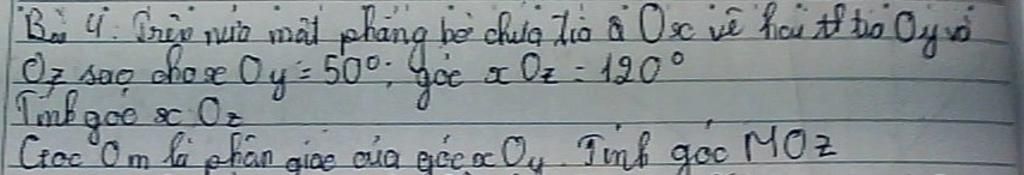 Bài 4: Trên nửa mặt phẳng bờ chứa tia Ox vẽ hai tia Oy và
Oz sao cho xOy = 50°; góc xOz = 120°
Tính góc xOz
Gọi Om là phân giác của góc xOy. Tính góc MOz